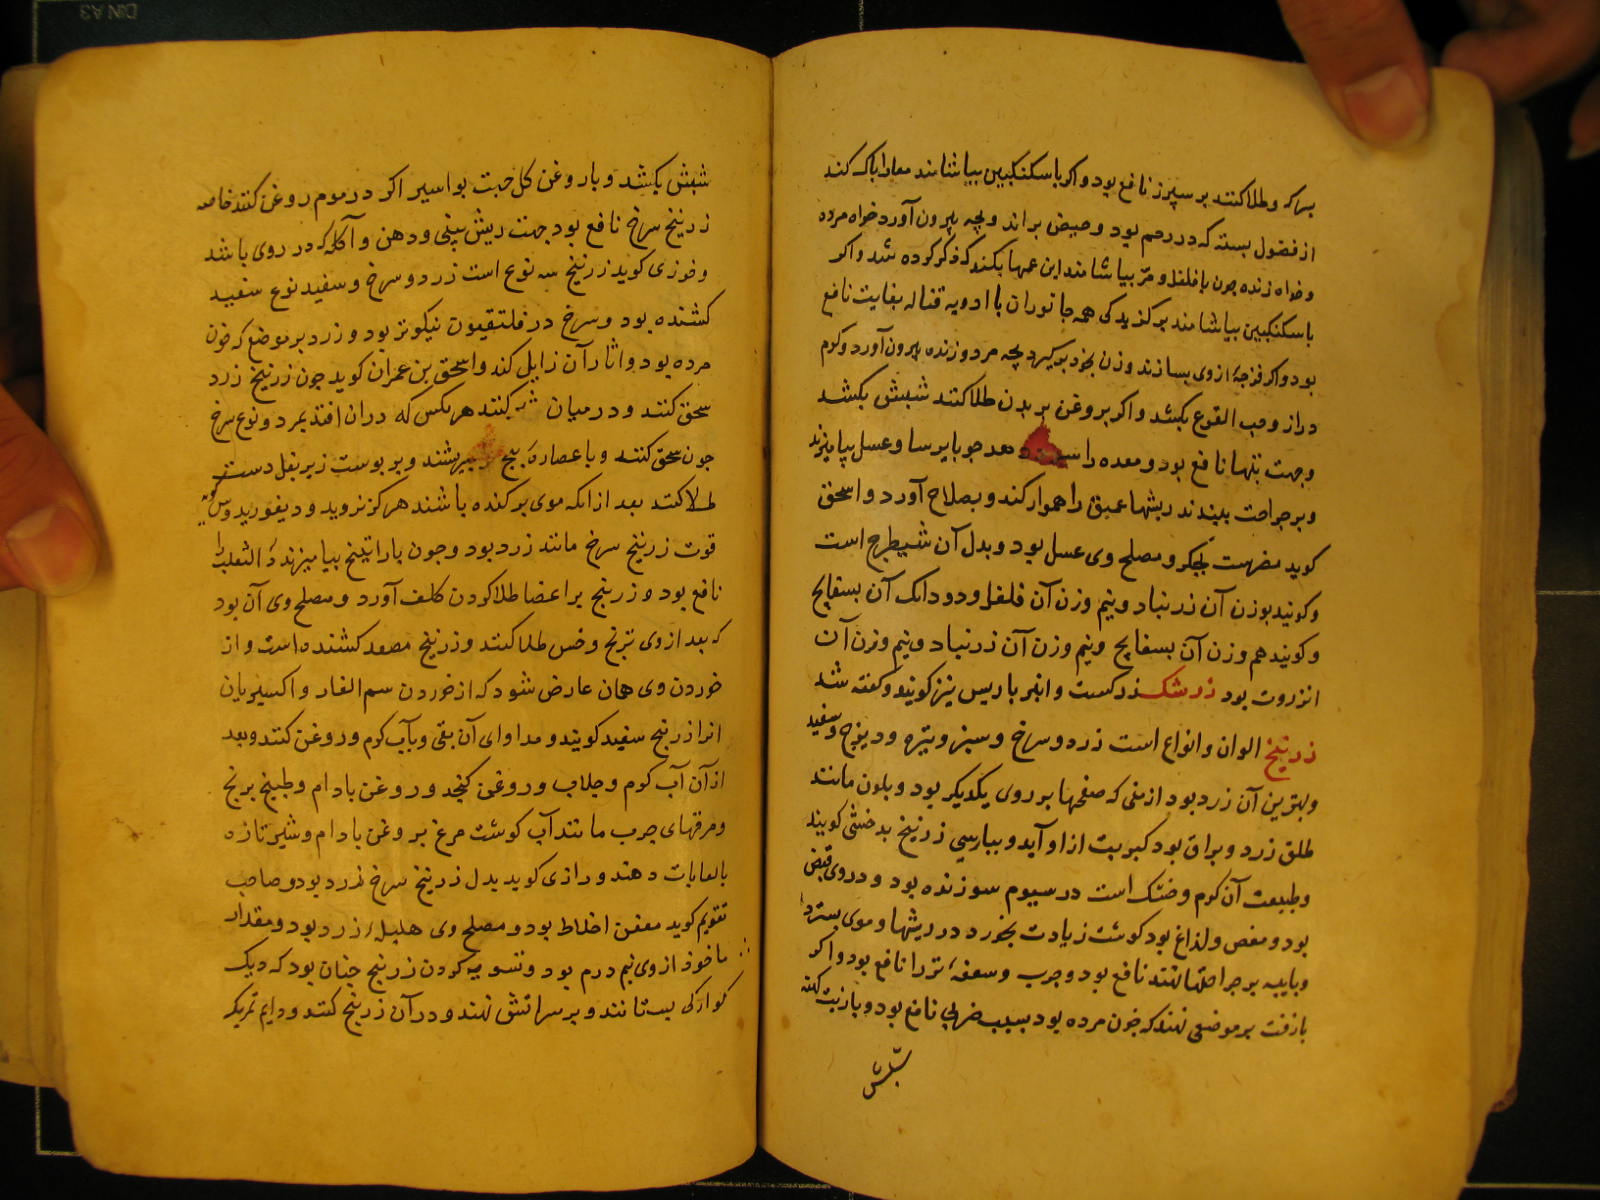 بسرکه و طلا کنند بر سپرز نافع بود و اکر با سکنکبین بیاشامند معا را پاک کند
از فضول بسته که در رحم بود و حیض براند و بچه بیرون آورد خواه مرده
و خواه زنده چون با فلفل و مر بیاشامند این عمها بکند که ذکر کرده شد و اکر
با سکنکبین بیاشامند بر کزیدکی همه جانوران با ادویه قتاله بغایت نافع
بود و اکر فرزجهٔ از وی بسازند و زن بخود برکیرد بچه مرده و زنده بیرون آورد و کرم
دراز و حب القرع بکشد و اکر بروغن بر بدن طلا کنند شبش بکشد
و جهت تبها نافع بود و معده را چو با ایرسا و عسل بیامیزند
و بر جراحت ببندند ریشها عمیق را هموار کند و بصلاح آورد و اسحق
کوید مضرست بجکر و مصلح وی عسل بود و بدل آن شیطرج است
و کویند بوزن آن زرنباد و نیم وزن آن فلفل و دو دانک آن بسفایج
و کویند هم وزن آن بسفایج و نیم وزن آن زرنباد و نیم وزن آن
انزروت بود زرشک زرکست و انبر باریس نیز کویند و کفته شد
زرنیخ الوان و انواع است زرد و سرخ و سبز و تیره و دیزج و سفید
و بهترین آن زرد بود ارمنی که صفحها بر روی یکدیکر بود و بلون مانند
طلق زرد و براق بود کبریت از او آید و بپارسی زرنیخ بدخشی کویند
و طبیعت آن کرم و خشک است در سیوم سوزنده بود و در وی قبض
بود و معفن و لذاع بود کوشت زیادت بخورد در ریشها و موی بسترد
و با پیه بر جراحتها نهند نافع بود و جرب و سعفهٔ تر را نافع بود و اکر
با زفت بر موضعی نهند که خون مرده بود بسبب ضربی نافع بود و با زیت کهنه
شبش
شبش بکشد و با روغن کل جهت بواسیر اکر در موم روغن کنند خاصه
زرنیخ سرخ نافع بود جهت ریش بینی و دهن و آکله که در روی باشد
و خوزی کوید زرنیخ سه نوع است زرد و سرخ و سفید نوع سفید
کشنده بود و سرخ در فلتقیون نیکوتر بود و زرد بر موضع که خون
مرده بود و اثار آن زایل کند و اسحق بن عمران کوید چون زرنیخ زرد
سحق کنند و در میان شیر کنند هر مکس که در ان افتد بمرد و نوع سرخ
چون سحق کنند و با عصارهٔ بیخ بسرشند و بر پوست زیر بغل دست
طلا کنند بعد از انکه موی برکنده باشند هرکز نروید و دیفوریدوس کوید
قوت زرنیخ سرخ مانند زرد بود و چون با راتینج بیامیزند داء الثعلب را
نافع بود و زرنیخ بر اعضا طلا کردن کلف آورد و مصلح وی آن بود
که بعد از وی برنج و خس طلا کنند و زرنیخ مصعد کشنده است و از
خوردن وی همان عارض شود که از خوردن سم الفار و اکسیریان
انرا زرنیخ سفید کویند و مداوای آن بقی و بآب کرم و روغن کنند و بعد
از آن آب کرم و جلاب و روغن کنجد و روغن بادام و طبیخ برنج
و مرقهای چرب مانند آب کوشت مرغ بروغن بادام و شیر تازه
با لعابات دهند و رازی کوید بدل زرنیخ سرخ زرد بود و صاحب
تقویم کوید معفن اخلاط بود و مصلح وی هلیلهٔ زرد بود و مقدار
ماخوذ از وی نیم درم بود و تسویه کردن زرنیخ چنان بود که دیک
بستانند و بر سر اتش نهند و در آن زرنیخ کنند و دایم تحریک